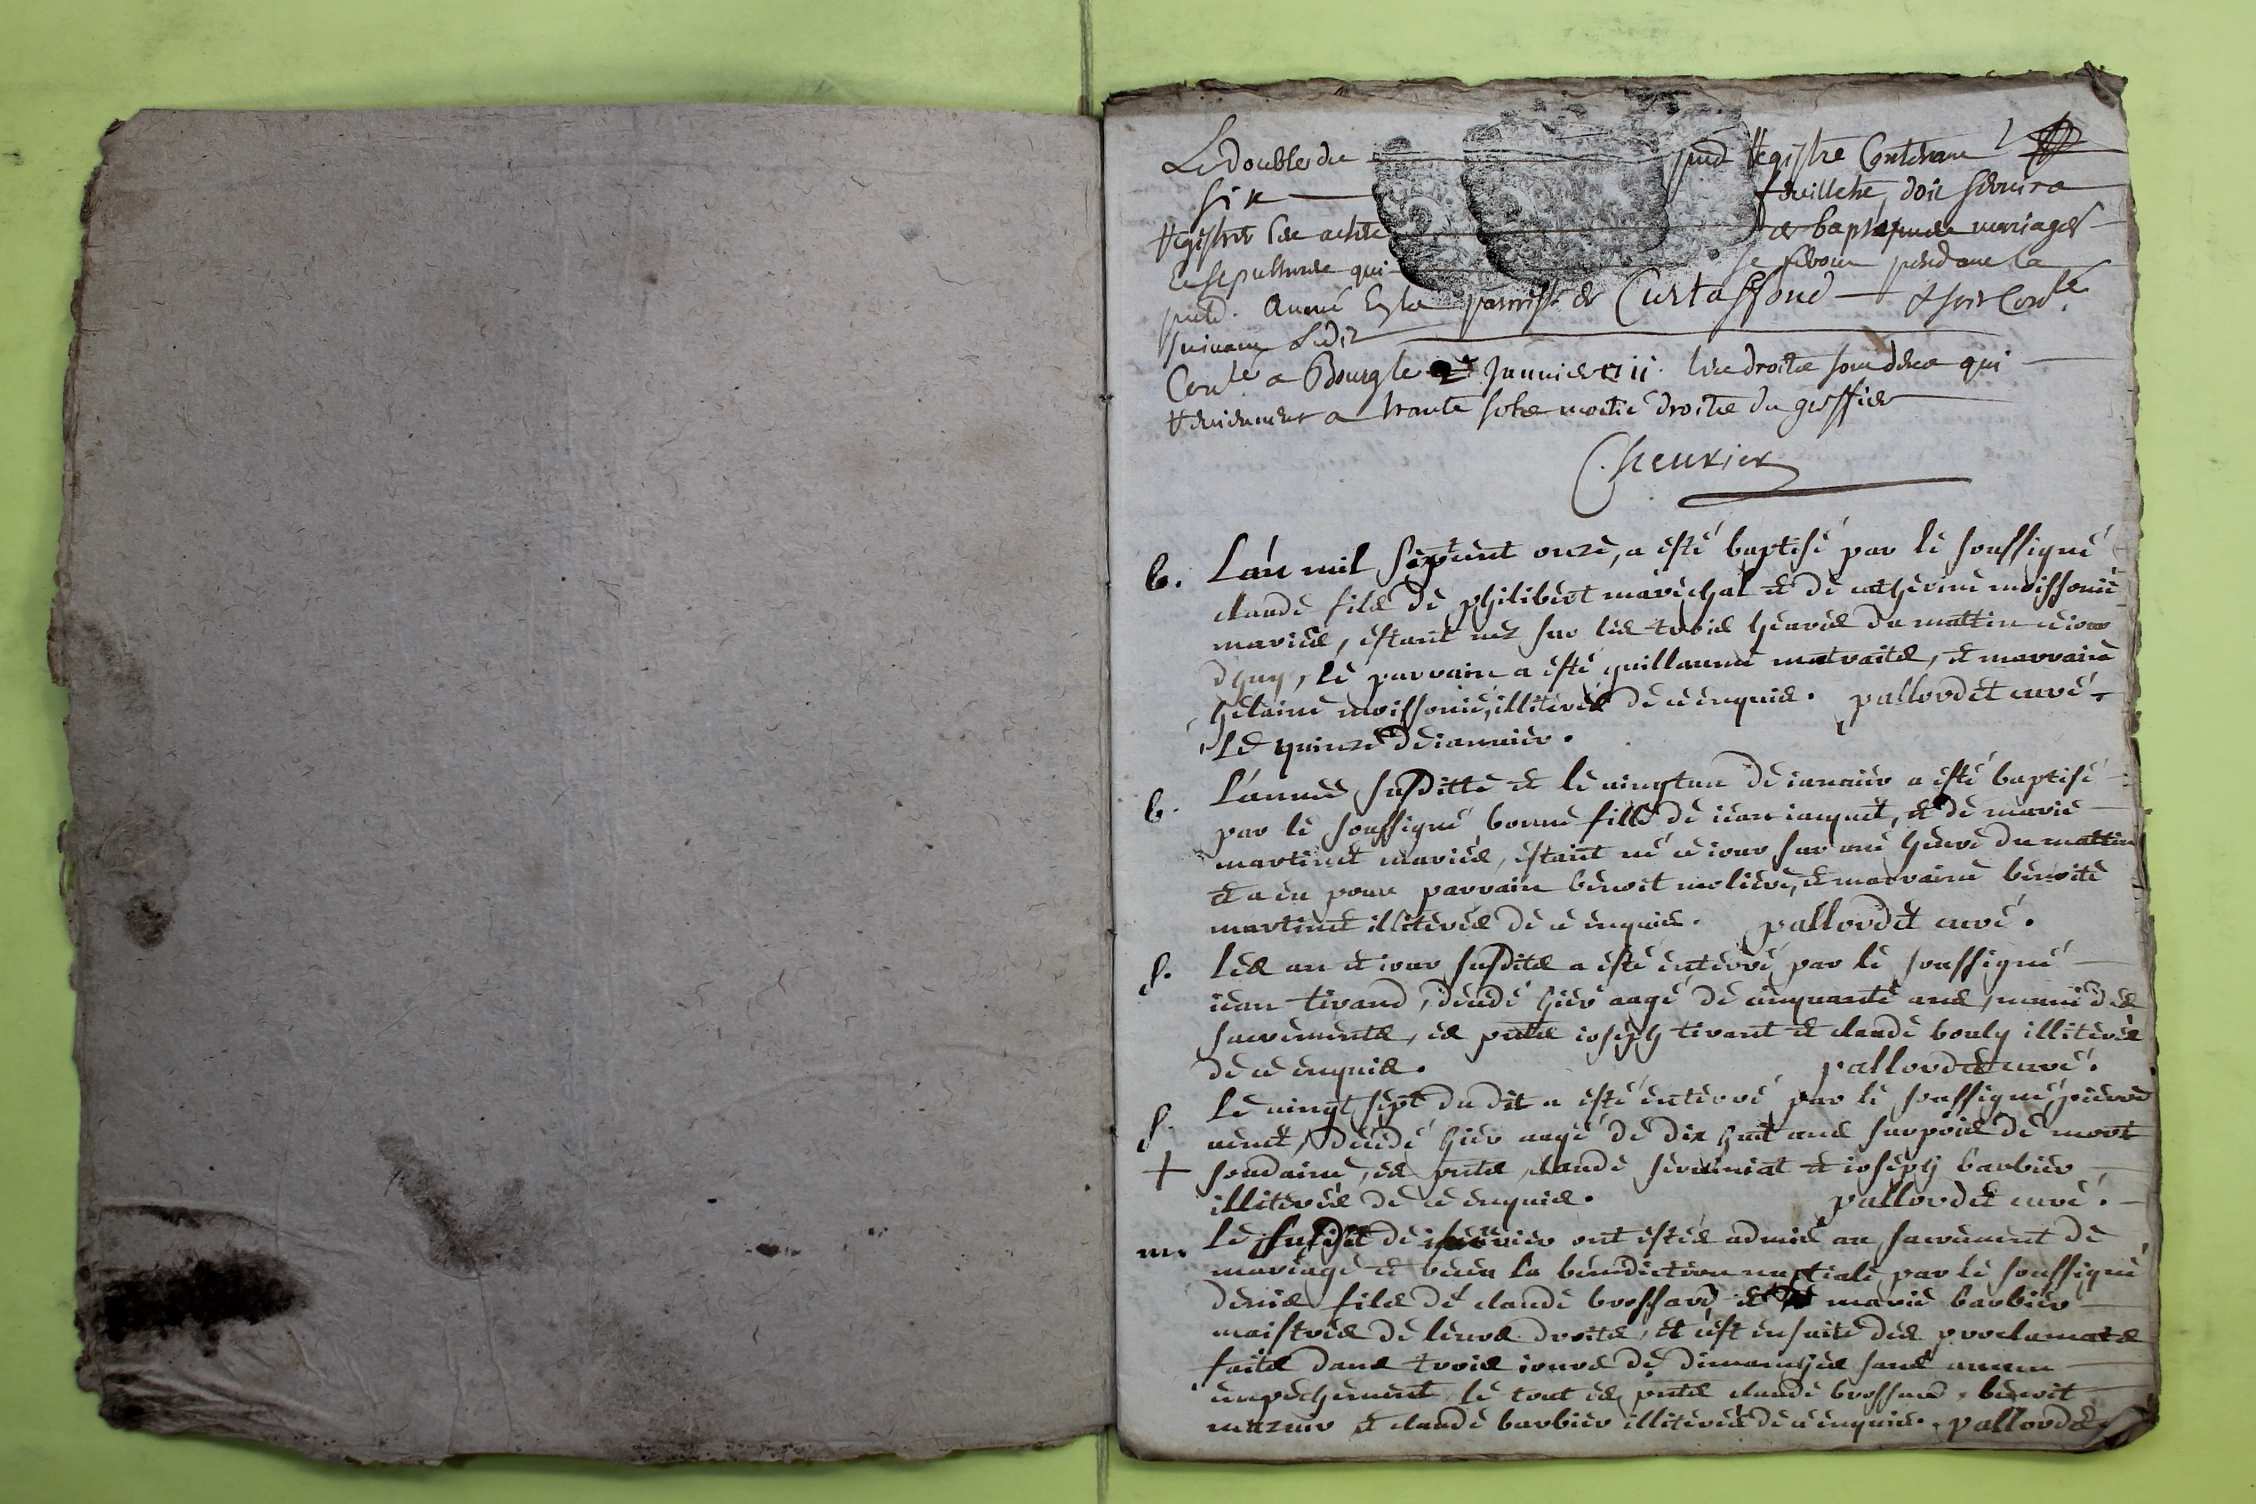 Le double du pnt Registre Contenant
six feuillets, doit servir a
Registrer les actes de baptesmes mariages
Et sepultures qui se feront pendant la
pnte. Année En la parroisse de Curtaffond
suivant Ledit
a Bourg le Janvier 1711. Les droits
a trante sols moitié droits du greffier
Cheurier
b. L'an mil sept cent onze, a esté baptisé par le soussigné
claude fils de philibert maréchal et de catherine moissonié
mariés, estant nez sur les trois heures du mattin ce iour
d'huy, le parrain a esté guillaume mutraits, et marraine
helaine moissonié, illiterés de ce enquis. pallordet curé.
Le quinze de ianuier.
b. L'année susditte et le uingt un de ianuier a esté baptisé
par le soussigné bonne fille de iean iaquet, et de marie
martinet mariés, estant né ce iour sur une heure du mattin
et a eu pour parrain benoit molière, et marraine benoite
martinet illiterés de ce enquis. pallordet curé.
s. Les an et iour susdits a esté enterré par le soussigné
iean tirand, décédé hier aagé de cinquante ans, muni des
sacrements, es pnts ioseph tirant et claude bouly illiterés
de ce enquis. pallordet curé.
s. Le uingt sept du dit a esté enterré par le soussigné, pierre
uenet, décédé hier aagé de dix huit ans surpris de mort
+ soudaine, es pnts, claude seruiniat et ioseph barbier
illiterés de ce enquis. pallordet curé.
m. Le de ont estés admis au sacrement de
mariage et receu la bénédiction nuptiale par le soussigné
denis fils de claude brossard, et marie barbier
maistres de leurs droits, et c'est ensuite des proclamats
faits dans trois iours de dimanches sans aucun
empêchement le tout es pnts claude brossard, benoit
mazuir et claude barbier illiterés de ce enquis. pallordet